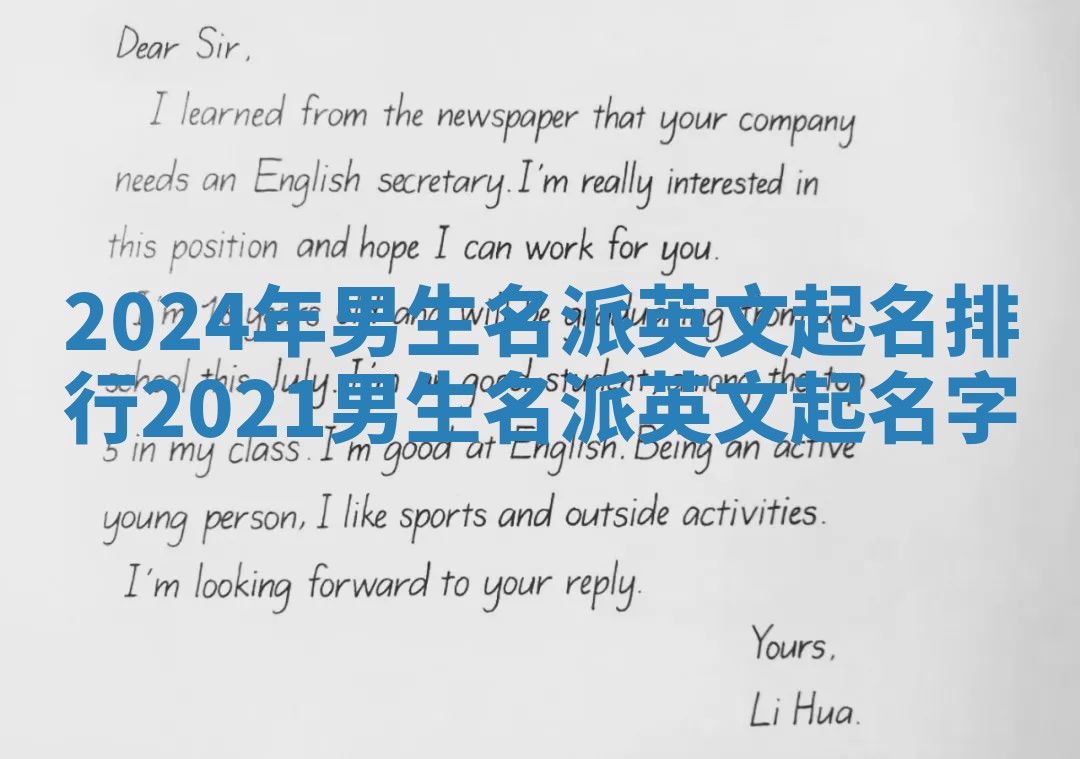 Dear Sir,
I learned from the newspaper that your company
needs an English secretary. I'm really interested in
this position and hope I can work for you.
2024年男生名派英文起名排
I'm years and will be graduating from
school this July. I'm a good student, among the top
行2021男生名派英文起名字
5 in my class. I'm good at English. Being an active
young person, I like sports and outside activities.
I'm looking forward to your reply.
Yours,
Li Hua.